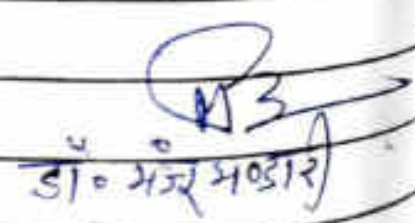 डॉ० मंजू भण्डारी